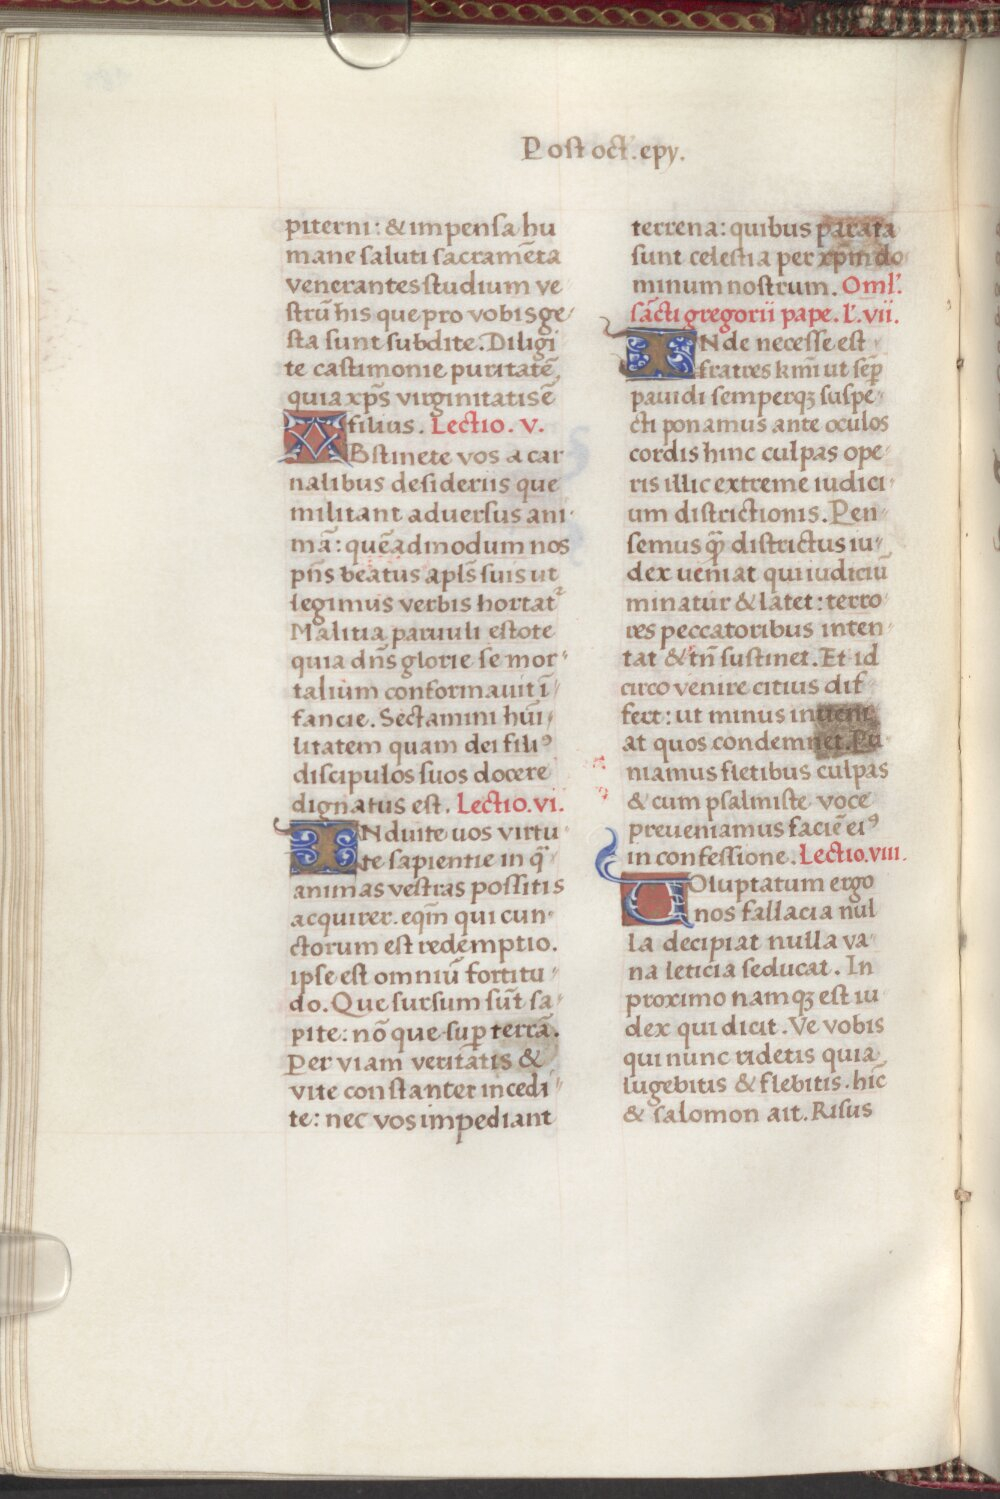 Post oct̄. epy.
piterni: & impensa hu
mane saluti sacramēta
venerantes studium ve
strū his que pro vobis ge
sta sunt subdite. Diligi
te castimonie puritatē,
quia xp̄s virginitatis ē
filius. Lectio. v.
ABstinete vos a car
nalibus desideriis que
militant adversus ani
mā: quēadmodum nos
pn̄s beatus apl̄s suis ut
legimus verbis hortat᷑
Malitia parvuli estote
quia dn̄s glorie se mor
talium conformavit ī
fancie. Sectamini hūi
litatem quam dei filiꝰ
discipulos suos docere
dignatus est. Lectio. vi.
INduite uos virtu
te sapientie in q̄
animas vestras possitis
acquirer. eqm̄ qui cun
ctorum est redemptio.
ipse est omniū fortitu
do. Que sursum sūt sa
pite: nō que sup̄ terrā.
Per viam veritatis &
vite constanter incedi
te: nec vos impediant
terrena: quibus parata
sunt celestia per xp̄m do
minum nostrum. Oml̄.
sācti gregorii pape. l̄. vii.
INde necesse est
fratres kmi̅ ut sēp̄
pavidi semperqꝫ suspe
cti ponamus ante oculos
cordis hinc culpas ope
ris illic extreme iudici
um districtionis. Pen
semus qꝫ̄ districtus iu
dex veniat qui iudiciū
minatur & latet: terro
res peccatoribus inten
tat & tn̄ sustinet. Et id
circo venire citius dif
fert: ut minus inueni
at quos condemnet. Pu
niamus fletibus culpas
& cum psalmiste voce
preveniamus faciē eiꝰ
in confessione. Lectio. viii.
UOluptatum ergo
nos fallacia nul
la decipiat nulla va
na leticia seducat. In
proximo namqꝫ est iu
dex qui dicit. Ve vobis
qui nunc ridetis quia
lugebitis & flebitis. hīc
& salomon ait. Risus